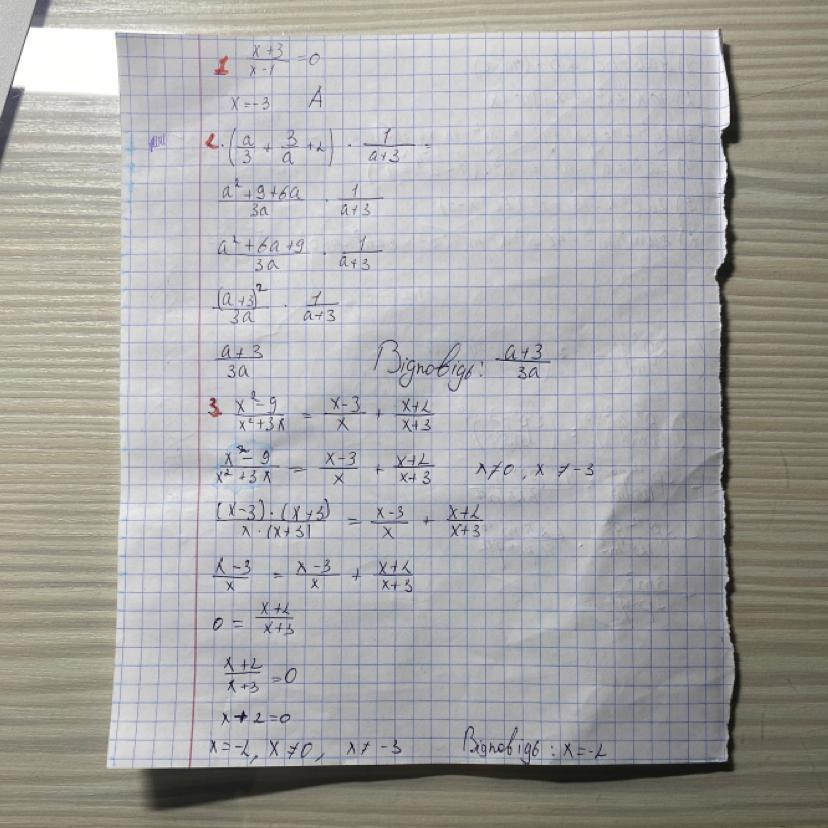 1 (x+3)/(x-1) = 0
x = -3 A
2. (a/3 + 3/a + 2) · 1/(a+3) =
(a² + 9 + 6a)/(3a) · 1/(a+3)
(a² + 6a + 9)/(3a) · 1/(a+3)
(a+3)²/(3a) · 1/(a+3)
(a+3)/(3a) Відповідь: (a+3)/(3a)
3. (x²-9)/(x²+3x) = (x-3)/x + (x+2)/(x+3)
(x²-9)/(x²+3x) = (x-3)/x + (x+2)/(x+3) x≠0, x≠-3
((x-3)·(x+3))/(x·(x+3)) = (x-3)/x + (x+2)/(x+3)
(x-3)/x = (x-3)/x + (x+2)/(x+3)
0 = (x+2)/(x+3)
(x+2)/(x+3) = 0
x+2=0
x=-2, x≠0, x≠-3 Відповідь: x=-2